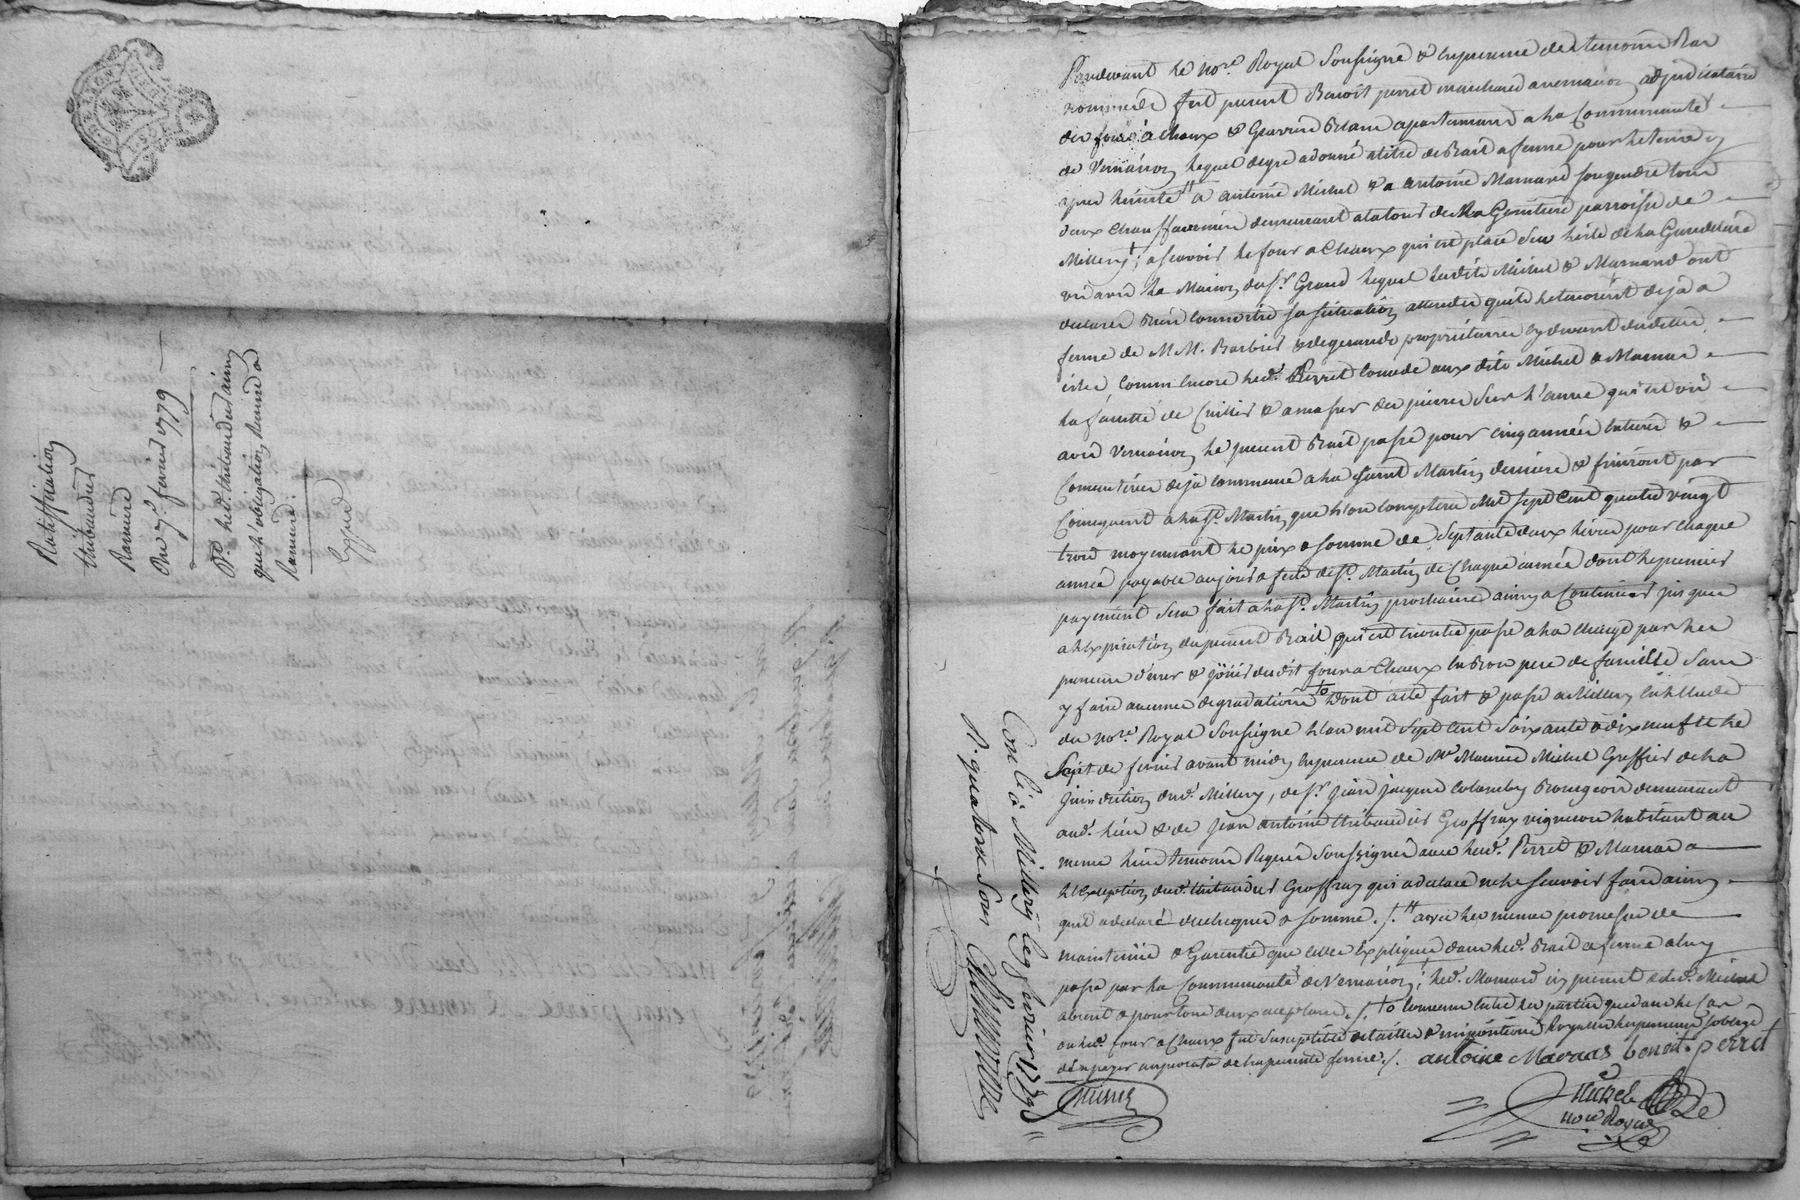 Ratiffication
thibaudier
Ramiere
Du 7e. fevrier 1779
Pr. led. thibaudier ainsy
que l'obligation Rennée a
Ramiere.
Expédié
Pardevant le nore. Royal Soussigné & en presence des temoins Bas
nommés fut present Benoit perret marchand a vernaison adjudicataire
des fours a Chaux & Graviere & Isles apartenant a la Communauté
de Vernaison lequel de gre a donné a titre de Bail a ferme pour le terme cy
apres limité # a antoine Michel & a antoine Marnard son gendre tous
deux Chauffourniers demeurant a la tour de la Gravtiere parroisse de
Millery; a scavoir le four a Chaux qui est placé sur l'isle de la Gandolière
vis avis la Maison du sr. Grand lequel lesdits Michel & Marnard ont
declaré Bien Connoitre sa situation attendu qu'ils le tenoient deja a
ferme de M M. Barbier & degerando propriétaires cy devant desdittes
isles Comme Encore led. Perret Concede aux dits Michel & Marnar
la faculté de Cuillir & amasser des pierres sur l'anne qui est vis
avis Vernaison le present Bail passé pour cinq années Entieres &
Consecutives deja commencé a la saint Martin derniere & finiront par
Consequent a la st. Martin que l'on Comptera Mil sept Cent quatre vingt
trois moyennant le prix & somme de Septante deux livres pour chaque
année payable au jour & feste de st. Martin de Chaque année dont le premier
payement sera fait a la st. Martin prochaine ainsy a Continuer jusques
a l'Expiration du present Bail qui est en outre passé a la charge par les
preneurs d'user & jouir dudit four a Chaux En Bon pere de famille sans
y faire aucunes degradations to dont acte fait & passé a Millery En l'Etude
du nore. Royal Soussigné l'an mil Sept Cent Soixante & dix neuf & le
Sept de fevrier avant midy En presence de Me. Maurice Michel Greffier de la
Jurisdiction dud. Millery, de sr. jean jacques colomby Bourgeois demeurant
aud. lieu & de jean antoine thibaudier Geoffray vigneron habitant au
meme lieu temoins Requis Soussignés avec led. Perret & Marnar a
l'Exception dud. thibaudier Geoffray qui a declaré ne le scavoir faire ainsy
qu'il a declaré de ce Enquis & sommé ./. # avec les memes promesses de
maintenue & Garentie que celles Expliquées dans led. Bail a ferme a luy
passé par la Communauté de Vernaison; led. Marnard icy present & led. Michel
absent & pour tous deux acceptant ./. to Convenu Entre les parties que dans le Cas
ou led. four a Chaux fut susceptible de tailles & impositions Royalles les preneurs s'obligent
d'en payer au prorata de la presente ferme ./. antoine Marnas benoit perret
Michel
Michel
nore Royal
Conlé a Millery le 9 fevrier 1779
R. quatorze Sous